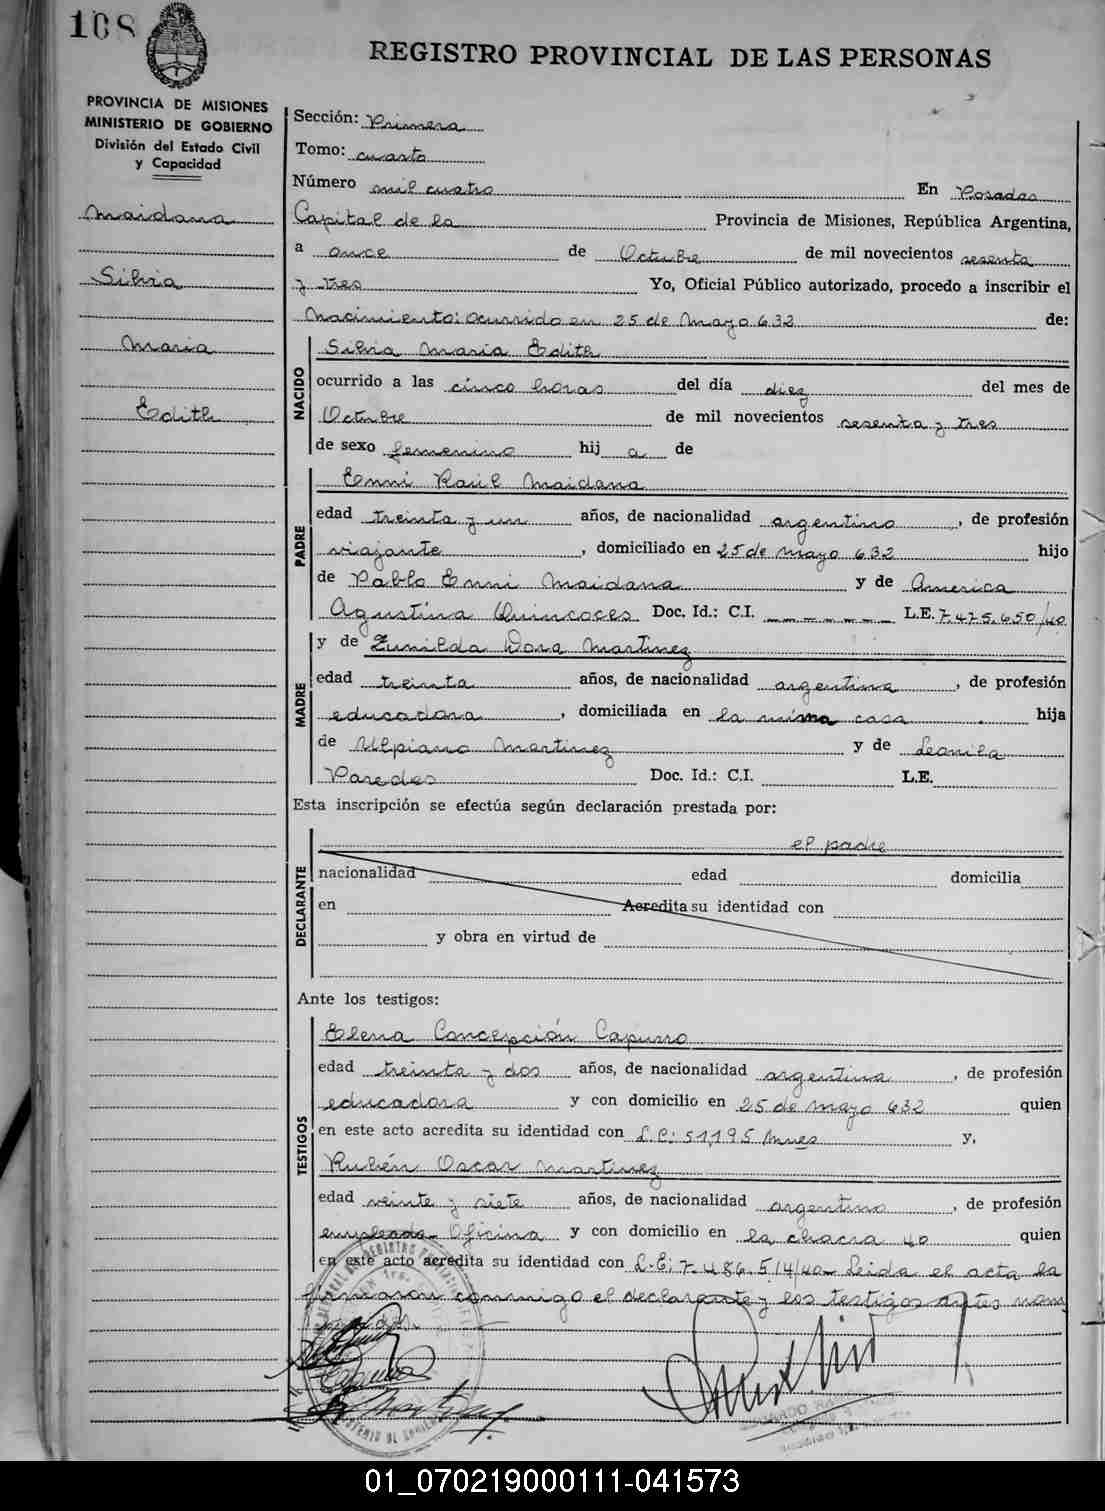 108
REGISTRO PROVINCIAL DE LAS PERSONAS
PROVINCIA DE MISIONES
MINISTERIO DE GOBIERNO
División del Estado Civil
y Capacidad
Maidana
Silvia
Maria
Edith
Sección: Primera
Tomo: cuarto
Número mil cuatro En Posadas
Capital de la Provincia de Misiones, República Argentina,
a once de Octubre de mil novecientos sesenta
y tres Yo, Oficial Público autorizado, procedo a inscribir el
Nacimiento: ocurrido en 25 de Mayo 632 de:
NACIDO
Silvia Maria Edith
ocurrido a las cinco horas del día diez del mes de
Octubre de mil novecientos sesenta y tres
de sexo femenino hij a de
PADRE
Enni Raúl Maidana
edad treinta y un años, de nacionalidad argentino, de profesión
viajante, domiciliado en 25 de Mayo 632 hijo
de Pablo Enni Maidana y de America
Agustina Quincoces Doc. Id.: C.I. _ _ _ _ _ _ _ L.E. 7.475.650/40
MADRE
y de Zunilda Dora Martinez
edad treinta años, de nacionalidad argentina, de profesión
educadora, domiciliada en la misma casa hija
de Ulpiano Martinez y de Leonila
Paredes Doc. Id.: C.I. L.E.
Esta inscripción se efectúa según declaración prestada por:
DECLARANTE
el padre
nacionalidad edad domicilia
en Acredita su identidad con
y obra en virtud de
Ante los testigos:
TESTIGOS
Elena Concepción Capurro
edad treinta y dos años, de nacionalidad argentina, de profesión
educadora y con domicilio en 25 de Mayo 632 quien
en este acto acredita su identidad con 51,195 y,
Rubén Oscar Martinez
edad veinte y siete años, de nacionalidad argentino, de profesión
empleado Oficina y con domicilio en la chacra 40 quien
en este acto acredita su identidad con L.E: 7.486.514/40 Leida el acta la
firmaron conmigo el declarante y los testigos antes nom
01_070219000111-041573